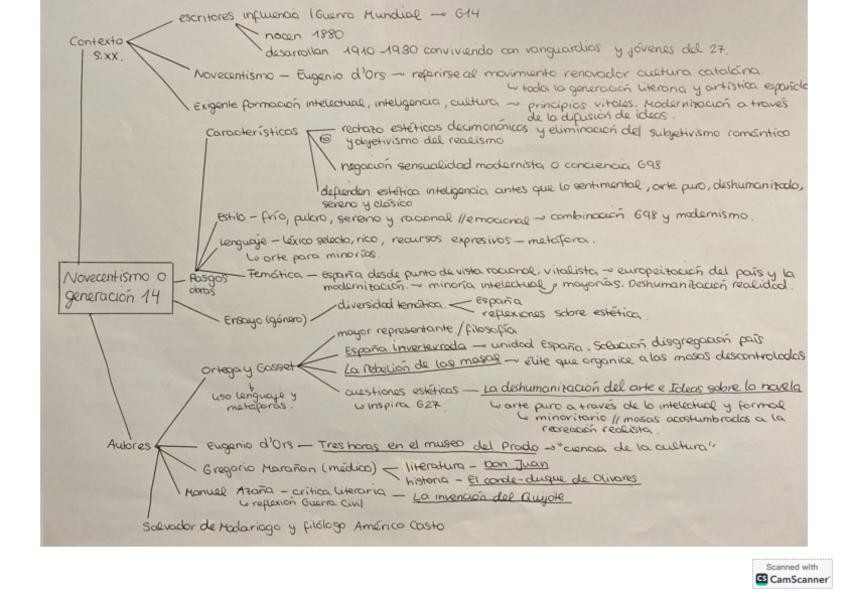 escritores influencia I Guerra Mundial → G14
nacen 1880
desarrollan 1910-1930 conviviendo con vanguardias y jóvenes del 27.
Contexto
S.XX.
Novecentismo – Eugenio d'Ors → referirse al movimiento renovador cultura catalana.
↳ toda la generación literaria y artística española
Exigente formación intelectual, inteligencia, cultura → principios vitales. Modernización a través
de la difusión de ideas.
Características
rechazo estéticas decimonónicas y eliminación del subjetivismo romántico
y objetivismo del realismo
negación sensualidad modernista o conciencia G98
defienden estética inteligencia antes que lo sentimental, arte puro, deshumanizado,
sereno y clásico
Estilo – frío, pulcro, sereno y racional // emocional → combinación G98 y modernismo.
Lenguaje – léxico selecto, rico, recursos expresivos – metáfora.
↳ arte para minorías.
Novecentismo o
generación 14
Rasgos
obras
Temática – España desde punto de vista racional, vitalista → europeización del país y la
modernización. → minoría intelectual, mayorías. Deshumanización realidad.
Ensayo (género)
diversidad temática
España
reflexiones sobre estética.
Ortega y Gasset
uso lenguaje y
metáforas.
mayor representante / filosofía
España invertebrada → unidad España. Solución disgregación país
La rebelión de las masas → élite que organice a las masas descontroladas
cuestiones estéticas – La deshumanización del arte e Ideas sobre la novela
↳ inspira G27.
↳ arte puro a través de lo intelectual y formal
↳ minoritario // masas acostumbradas a la
recreación realista.
Autores
Eugenio d'Ors – Tres horas en el museo del Prado → "ciencia de la cultura"
Gregorio Marañon (médico)
literatura – Don Juan
historia – El conde-duque de Olivares
Manuel Azaña – crítica literaria – La invención del Quijote
↳ reflexión Guerra Civil
Salvador de Madariaga y filólogo Américo Casto
Scanned with
CS CamScanner